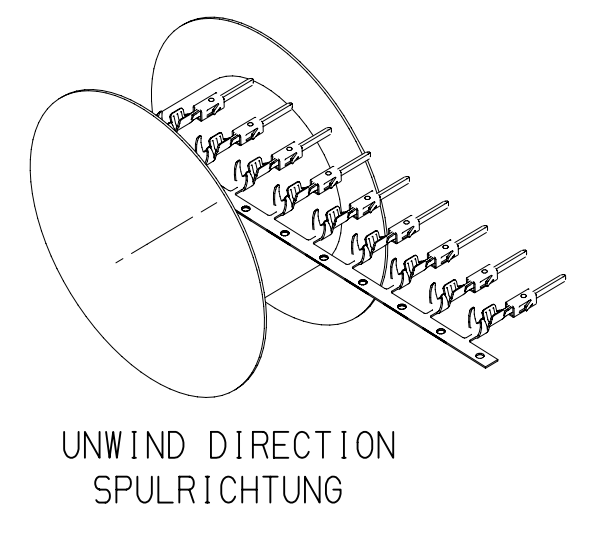 UNWIND DIRECTION
SPULRICHTUNG